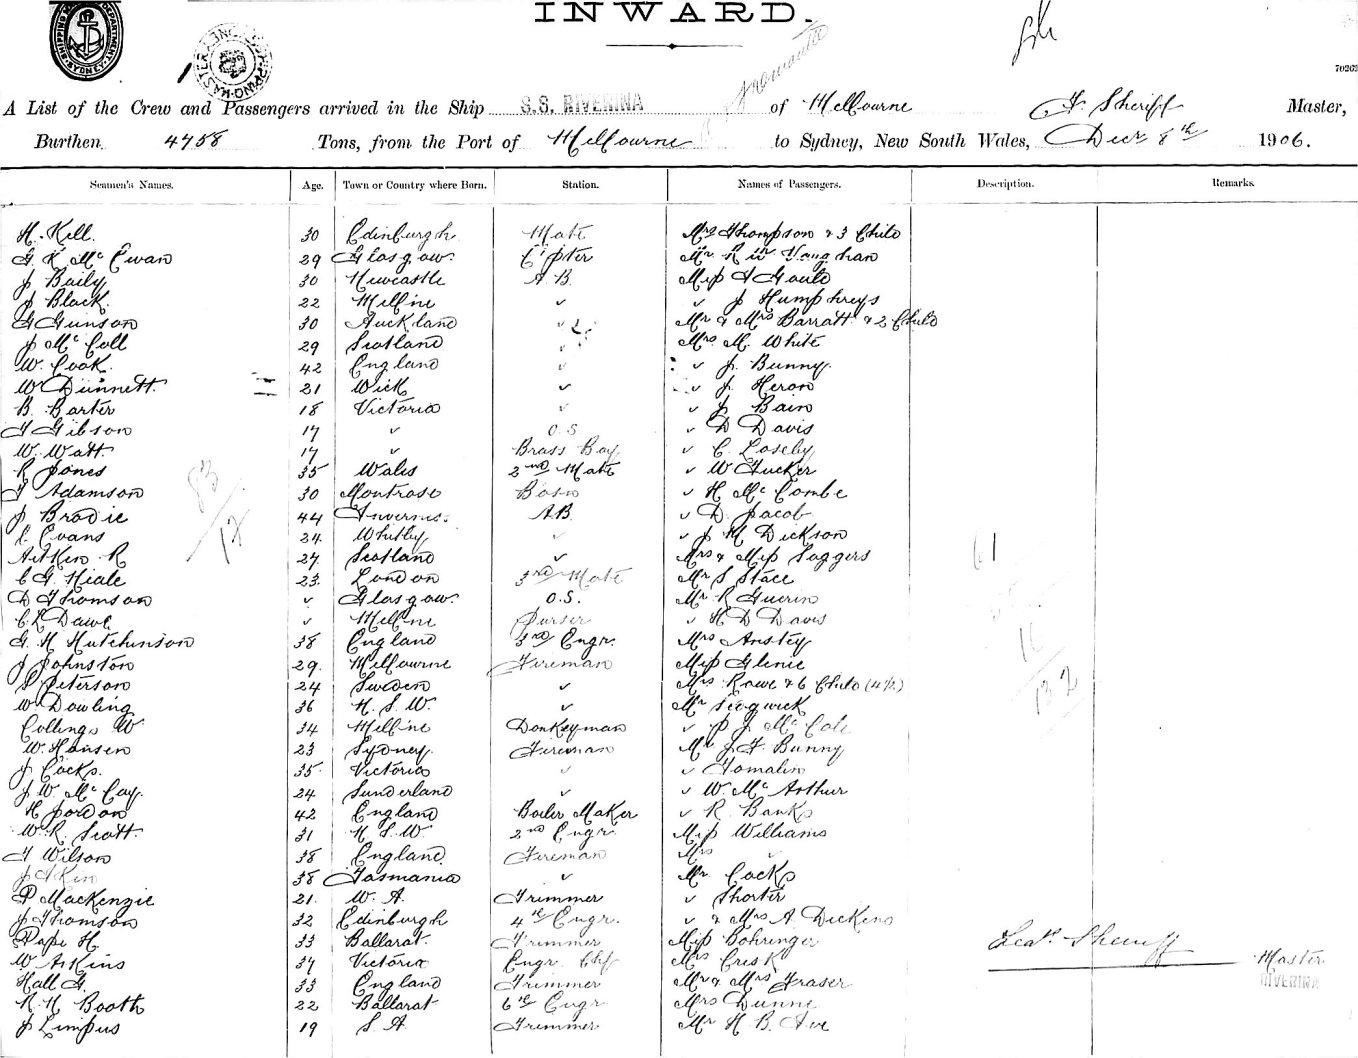 INWARD.
70263
A List of the Crew and Passengers arrived in the Ship S.S. RIVERINA of Melbourne F. Sheriff Master,
Burthen 4758 Tons, from the Port of Melbourne to Sydney, New South Wales, Decr 8th 1906.
Seamen's Names. Age. Town or Country where Born. Station. Names of Passengers. Description. Remarks.
H. Kell. 30 Edinburgh Mate Mrs Thompson & 3 Child
G. K. Mc Ewan 29 Glasgow. Mr Vaughan
J Baily 30 Newcastle A.B. Miss Gauld
J Black. 22 Melbne ✓ ✓ J Humphreys
G Gunson 30 Auckland ✓ Mr & Mrs Barratt & 2 Child
J Mc Coll 29 Scotland ✓ Mrs M. White
W. Cook. 42 England ✓ ✓ J. Bunny.
W Dunnett. 21 Wick ✓ ✓ J. Heron
B. Barter 18 Victoria ✓ ✓ J Bain
T Gibson 17 ✓ O.S. ✓ D Davis
W. Watt 17 ✓ Brass Boy ✓ C. Loseby
R Jones 35 Wales 2nd Mate ✓ W Tucker
T Adamson 30 Montrose Bosn ✓ H Mc Combe
J Brodie 44 Inverness. AB. ✓ D. Jacob
Evans 24 Whitby ✓ ✓ J M Dickson
Aitken R 27 Scotland ✓ Mrs & Miss Saggers
C G. Hiale 23. London 3rd Mate Mr S Stace
D Thomson ✓ Glasgow. O.S. Mr R Guerin
Dawe ✓ Melbne Purser ✓ H D Davis
G. H Hutchinson 38 England 3rd Engr. Mrs Anstey
J Johnston 29. Melbourne Fireman Miss Glenie
S Peterson 24 Sweden ✓ Mrs Rowe & 6 Child (4½)
W Dowling 36 N.S.W. ✓ Mr Sedgwick
Collings W 34 Melbne Donkeyman ✓ P J Mc Cole
W. Hansen 23 Sydney. Fireman Mr J. F. Bunny
J Cocks. 35 Victoria ✓ ✓ Tomalin
J W Mc Cay. 24 Sunderland ✓ ✓ W. Mc Arthur
H Jordon 42 England Boiler Maker ✓ R. Banks
W. R. Scott 31 N.S.W. 2nd Engr. Miss Williams
T Wilson 38 England. Fireman Mrs ✓
J Akin 38 Tasmania ✓ Mr Cocks
P Mackenzie 21. W. A. Trimmer ✓ Shorter
J Thomson 32 Edinburgh 4th Engr. ✓ & Mrs A. Dickens
Pape H 33 Ballarat. Trimmer Miss Bohringer
W Atkins 37 Victoria Engr. Chf Mrs Crisk
Hall G. 33 England Trimmer Mr & Mrs Fraser
R. H Booth 22 Ballarat 6th Engr Mrs Dunne
J Limpus 19 S. A. Trimmer Mr H. B. Ave
83
12
61
16
132
Sheriff Master
RIVERINA